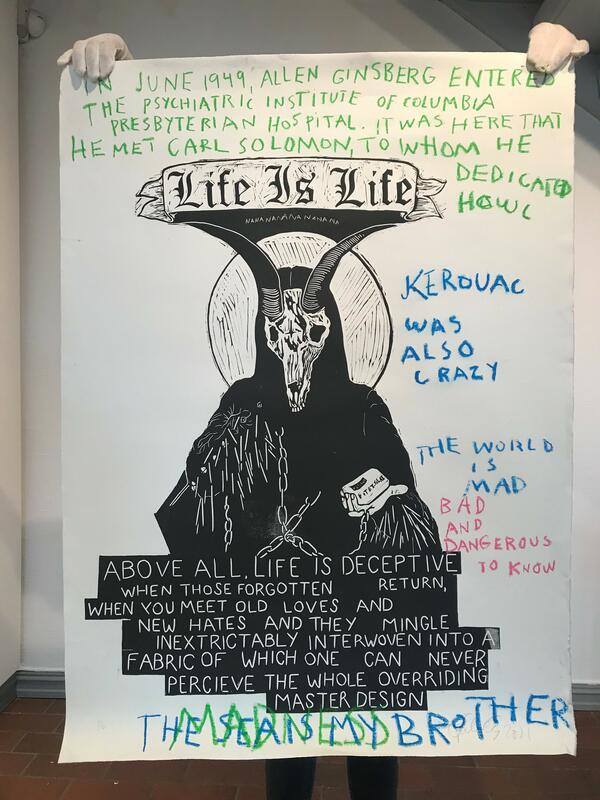 IN JUNE 1949, ALLEN GINSBERG ENTERED
THE PSYCHIATRIC INSTITUTE OF COLUMBIA
PRESBYTERIAN HOSPITAL. IT WAS HERE THAT
HE MET CARL SOLOMON, TO WHOM HE
DEDICATED
HOWL
Life Is Life
NANANANANANANA
KEROUAC
WAS
ALSO
CRAZY
THE WORLD
IS
MAD
BAD
AND
DANGEROUS
TO KNOW
ABOVE ALL, LIFE IS DECEPTIVE
WHEN THOSE FORGOTTEN RETURN,
WHEN YOU MEET OLD LOVES AND
NEW HATES AND THEY MINGLE
INEXTRICTABLY INTERWOVEN INTO A
FABRIC OF WHICH ONE CAN NEVER
PERCIEVE THE WHOLE OVERRIDING
MASTER DESIGN
MADNESS
THE SEA IS MY BROTHER